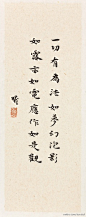 一切有為法如夢幻泡影
如露亦如電應作如是觀